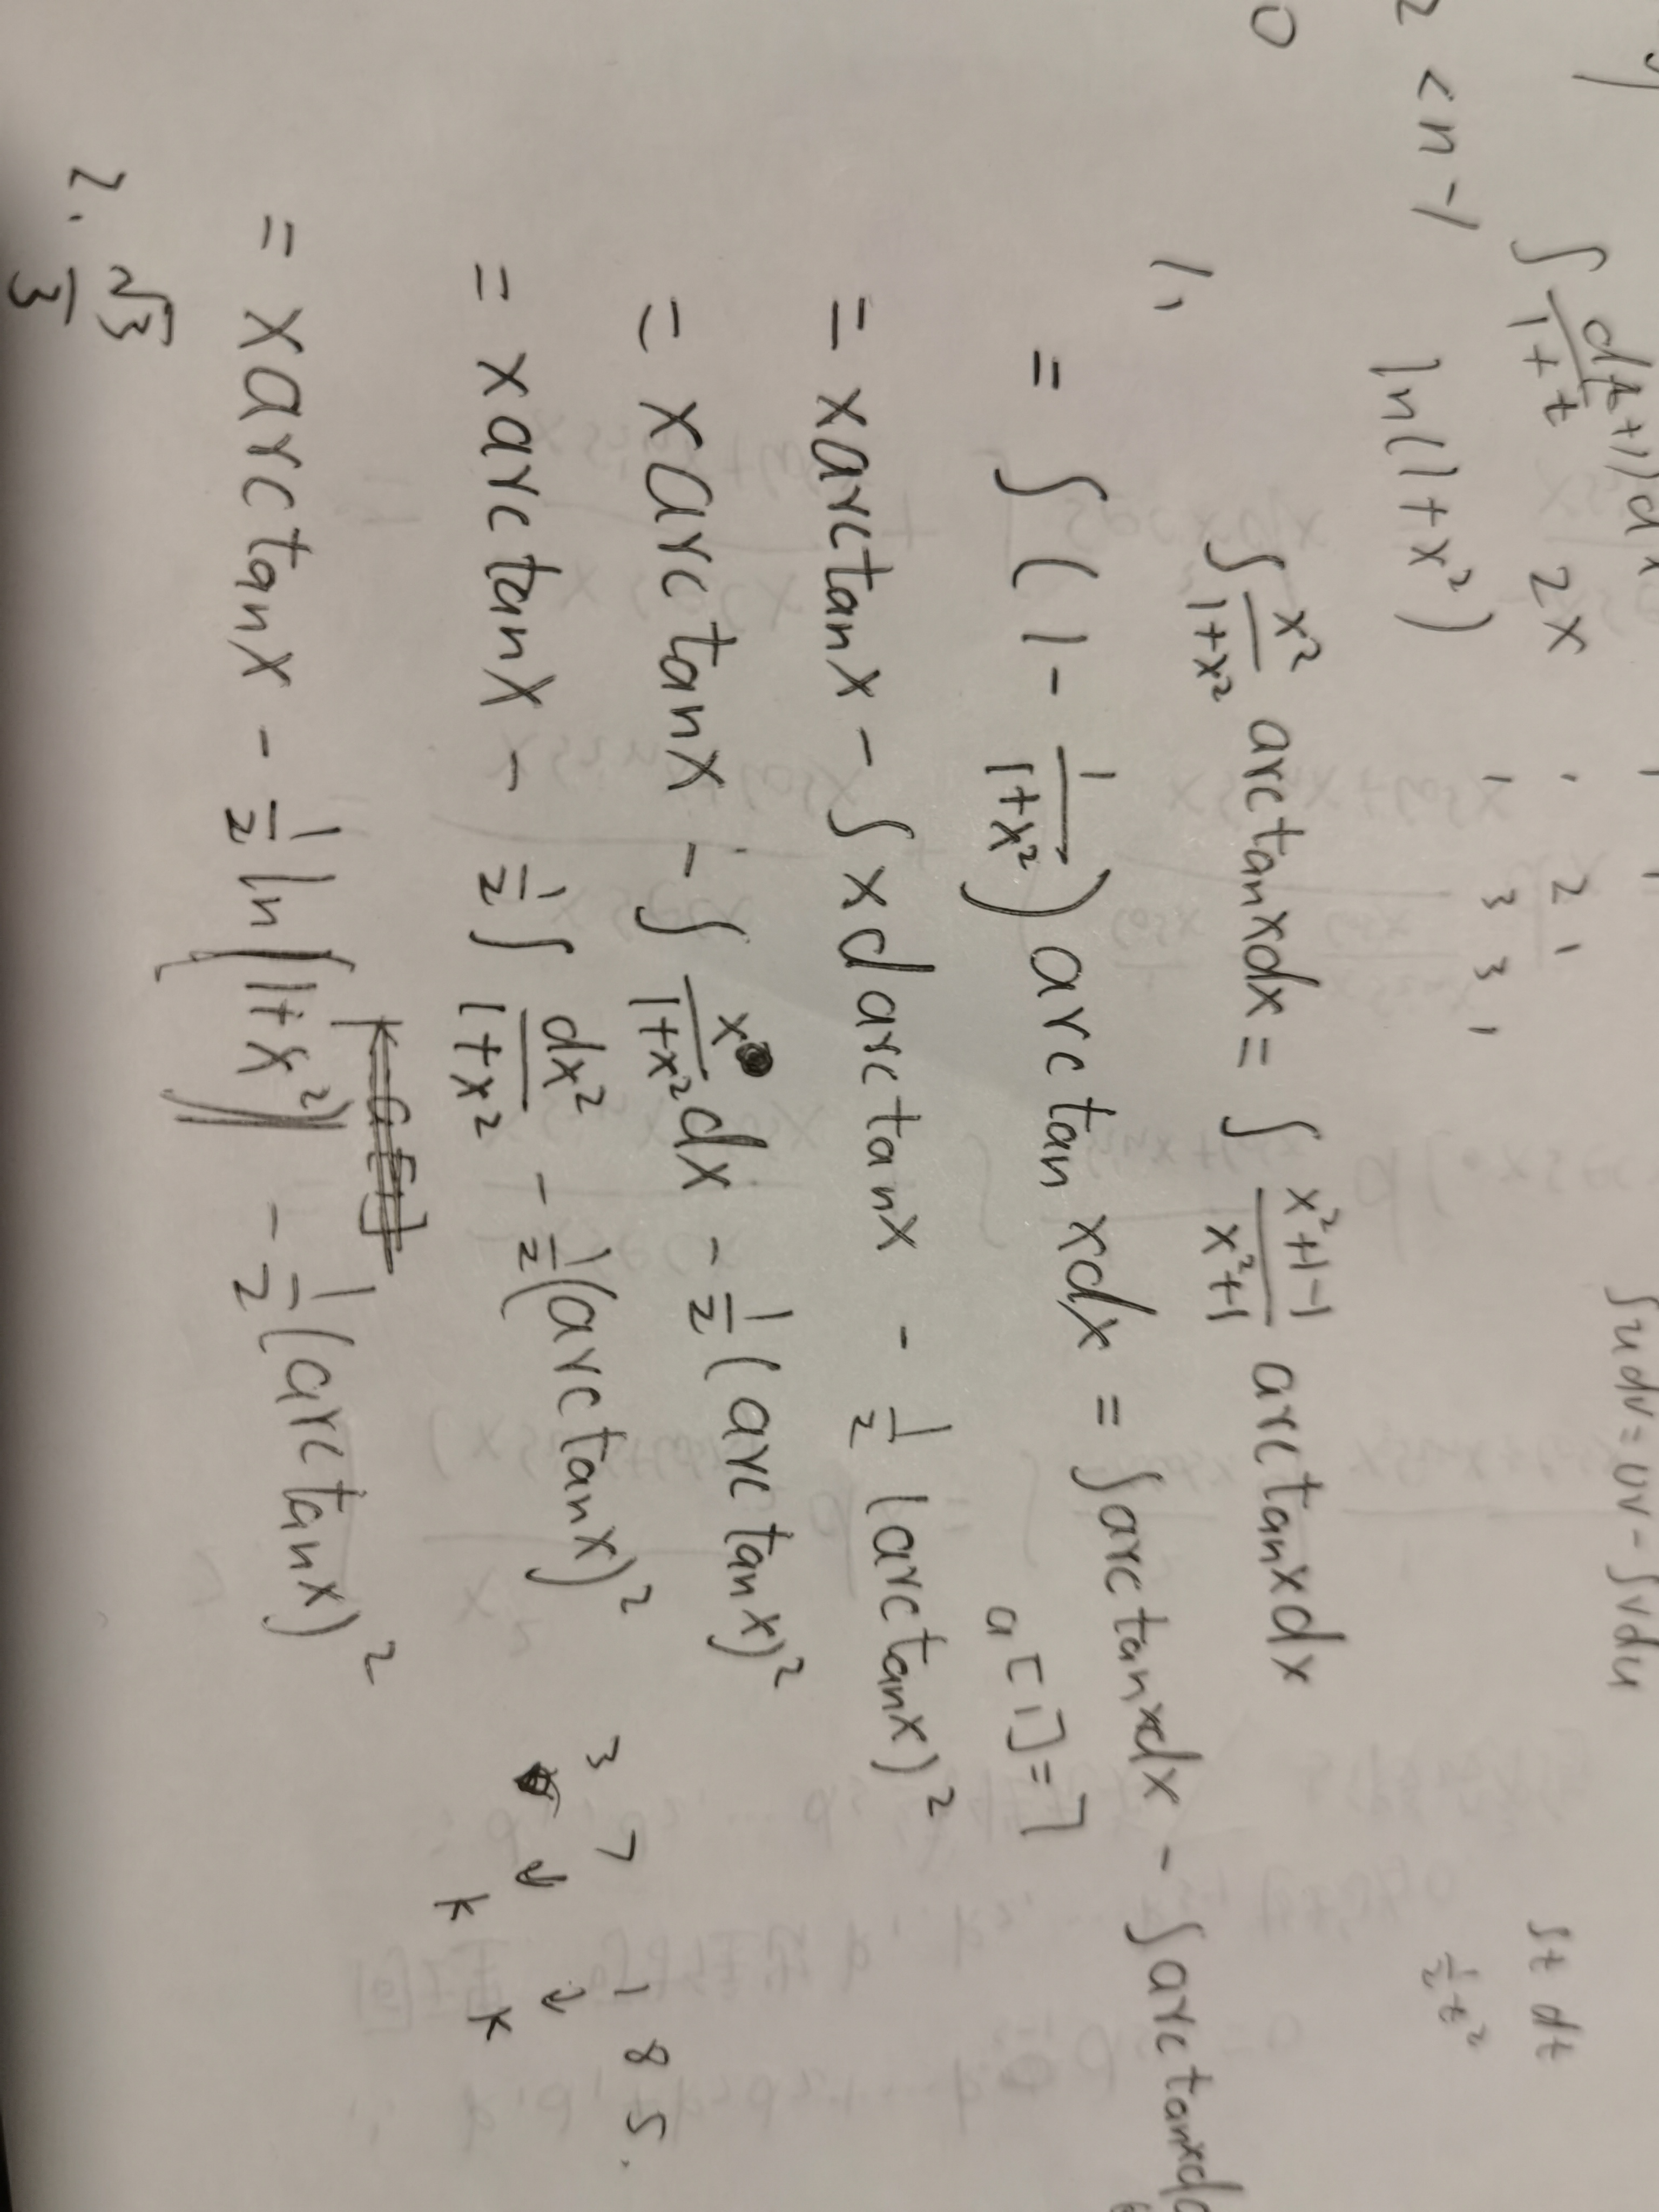 ∫ d(t+1)/(1+t) 2x
2 < n-1 ln(1+x²)
∫udv=uv-∫vdu
∫t dt
½t²
1, ∫ x²/(1+x²) arctanxdx = ∫ (x²+1-1)/(x²+1) arctanxdx
= ∫ (1 - 1/(1+x²)) arctan xdx = ∫arctanxdx - ∫arctanxd
a[i]=7
= xarctanx - ∫xdarctanx - ½(arctanx)²
= xarctanx - ∫ x/(1+x²) dx - ½(arctanx)²
3 7 1 8 5
= xarctanx - ½∫ dx²/(1+x²) - ½(arctanx)²
k k
= xarctanx - ½ln(1+x²) - ½(arctanx)²
2. √3/3